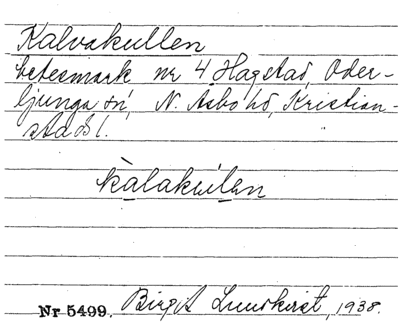 Kalvakullen
betesmark nr 4 Hagstad, Oder-
ljunga sn, N. Åsbo hd, Kristian-
stads l.
kàlakulan
Nr 5499. Birgit Lundkvist, 1938.